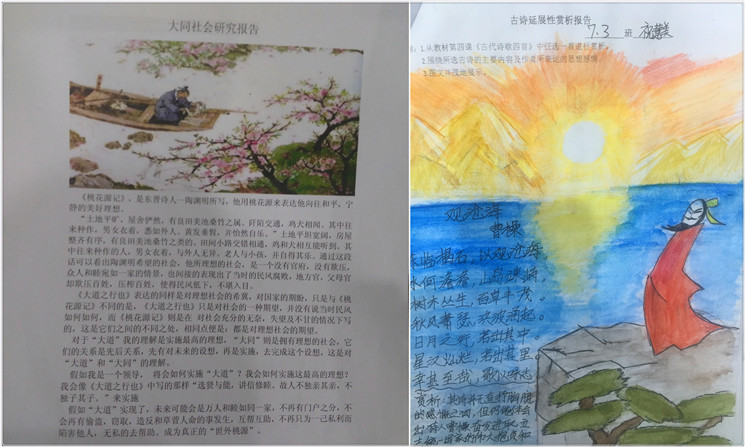 大同社会研究报告
《桃花源记》，是东晋诗人—陶渊明所写，他用桃花源来表达他向往和平、宁
静的美好理想。
“土地平旷，屋舍俨然，有良田美池桑竹之属。阡陌交通，鸡犬相闻。其中往
来种作，男女衣着，悉如外人。黄发垂髫，并怡然自乐。”土地平坦宽阔，房屋
整齐有序，有良田美池桑竹之类的。田间小路交错相通，鸡和犬相互能听到。其
中往来种作的人，男女衣着，与外人无异。老人与小孩，并自得其乐。通过这段
话可以看出陶渊明希望的社会，他所理想的社会，是一个没有官府，没有欺压，
众人和睦宛如一家的情景，也间接的表现出了当时的民风腐败，地方官，父母官
却欺压百姓，压榨百姓，使得民风低下，不堪入目。
《大道之行也》表达的同样是对理想社会的希冀，对国家的期盼，只是与《桃
花源记》不同的是，《大道之行也》只是对社会的一种期望，并没有说当时民风
如何如何，而《桃花源记》则是在 对社会充分的无奈，失望及不甘的情况下写
的，这是它们之间的不同之处，相同点便是：都是对理想社会的期望。
对于“大道”我的理解是实施最高的理想，“大同”则是拥有理想的社会，它
们的关系是先后关系，先有对未来的设想，再是实施，去完成这个设想，这是对
“大道”和“大同”的理解。
假如我是一个领导， 将会如何实施“大道”？我会如何实施这最高的理想？
我会像《大道之行也》中写的那样“选贤与能，讲信修睦，故人不独亲其亲，不
独子其子，”来实施
假如“大道”实现了，未来可能会是万人和睦如同一家，不再有门户之分，不
会再有偷盗，窃取，造反和草菅人命的事发生，互帮互助，不再只为一己私利而
陷害他人，无私的去帮助，成为真正的“世外桃源”。
古诗延展性赏析报告
7.3 班
1.从教材第四课《古代诗歌四首》中任选一首进行赏析。
2.围绕所选古诗的主要内容及作者所表达的思想感情
3.图文并茂地展示。
观沧海
曹操
东临碣石，以观沧海
水何澹澹，山岛竦峙
树木丛生，百草丰茂。
秋风萧瑟，洪波涌起。
日月之行，若出其中
星汉灿烂，若出其里。
幸甚至哉，歌以咏志
赏析：